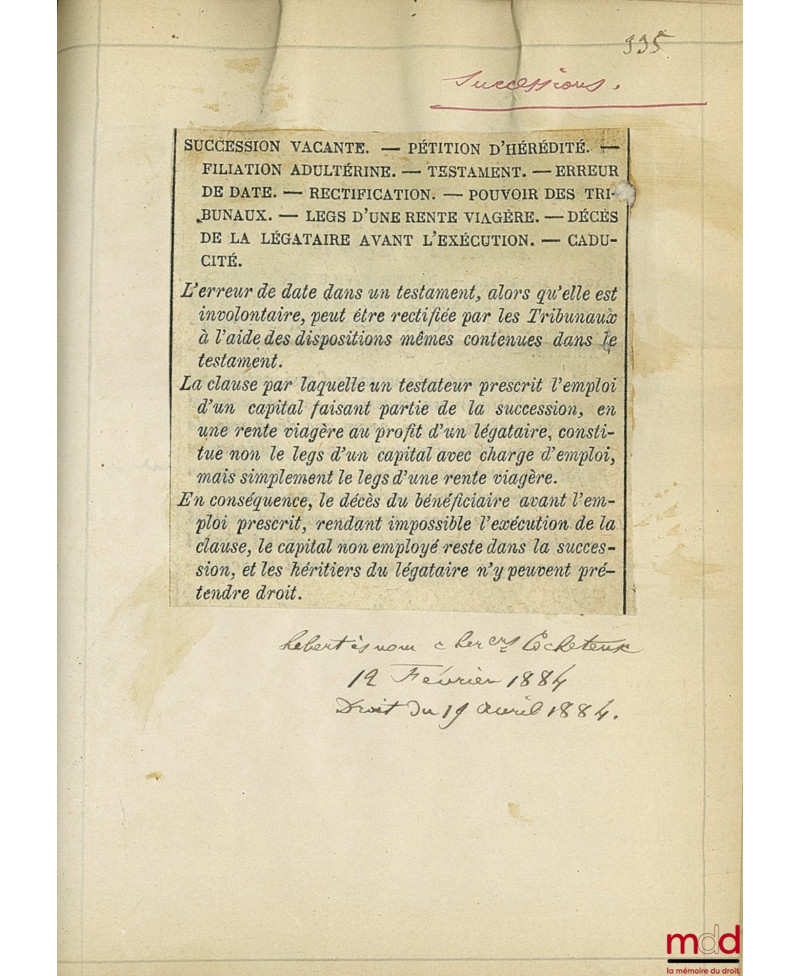 335
Successions.
SUCCESSION VACANTE. — PÉTITION D'HÉRÉDITÉ. —
FILIATION ADULTÉRINE. — TESTAMENT. — ERREUR
DE DATE. — RECTIFICATION. — POUVOIR DES TRI-
BUNAUX. — LEGS D'UNE RENTE VIAGÈRE. — DÉCÈS
DE LA LÉGATAIRE AVANT L'EXÉCUTION. — CADU-
CITÉ.
L'erreur de date dans un testament, alors qu'elle est
involontaire, peut être rectifiée par les Tribunaux
à l'aide des dispositions mêmes contenues dans le
testament.
La clause par laquelle un testateur prescrit l'emploi
d'un capital faisant partie de la succession, en
une rente viagère au profit d'un légataire, consti-
tue non le legs d'un capital avec charge d'emploi,
mais simplement le legs d'une rente viagère.
En conséquence, le décès du bénéficiaire avant l'em-
ploi prescrit, rendant impossible l'exécution de la
clause, le capital non employé reste dans la succes-
sion, et les héritiers du légataire n'y peuvent pré-
tendre droit.
hebert ès nom c her ers Cocheteux
12 Février 1884
Droit du 19 avril 1884.
mdd
la mémoire du droit